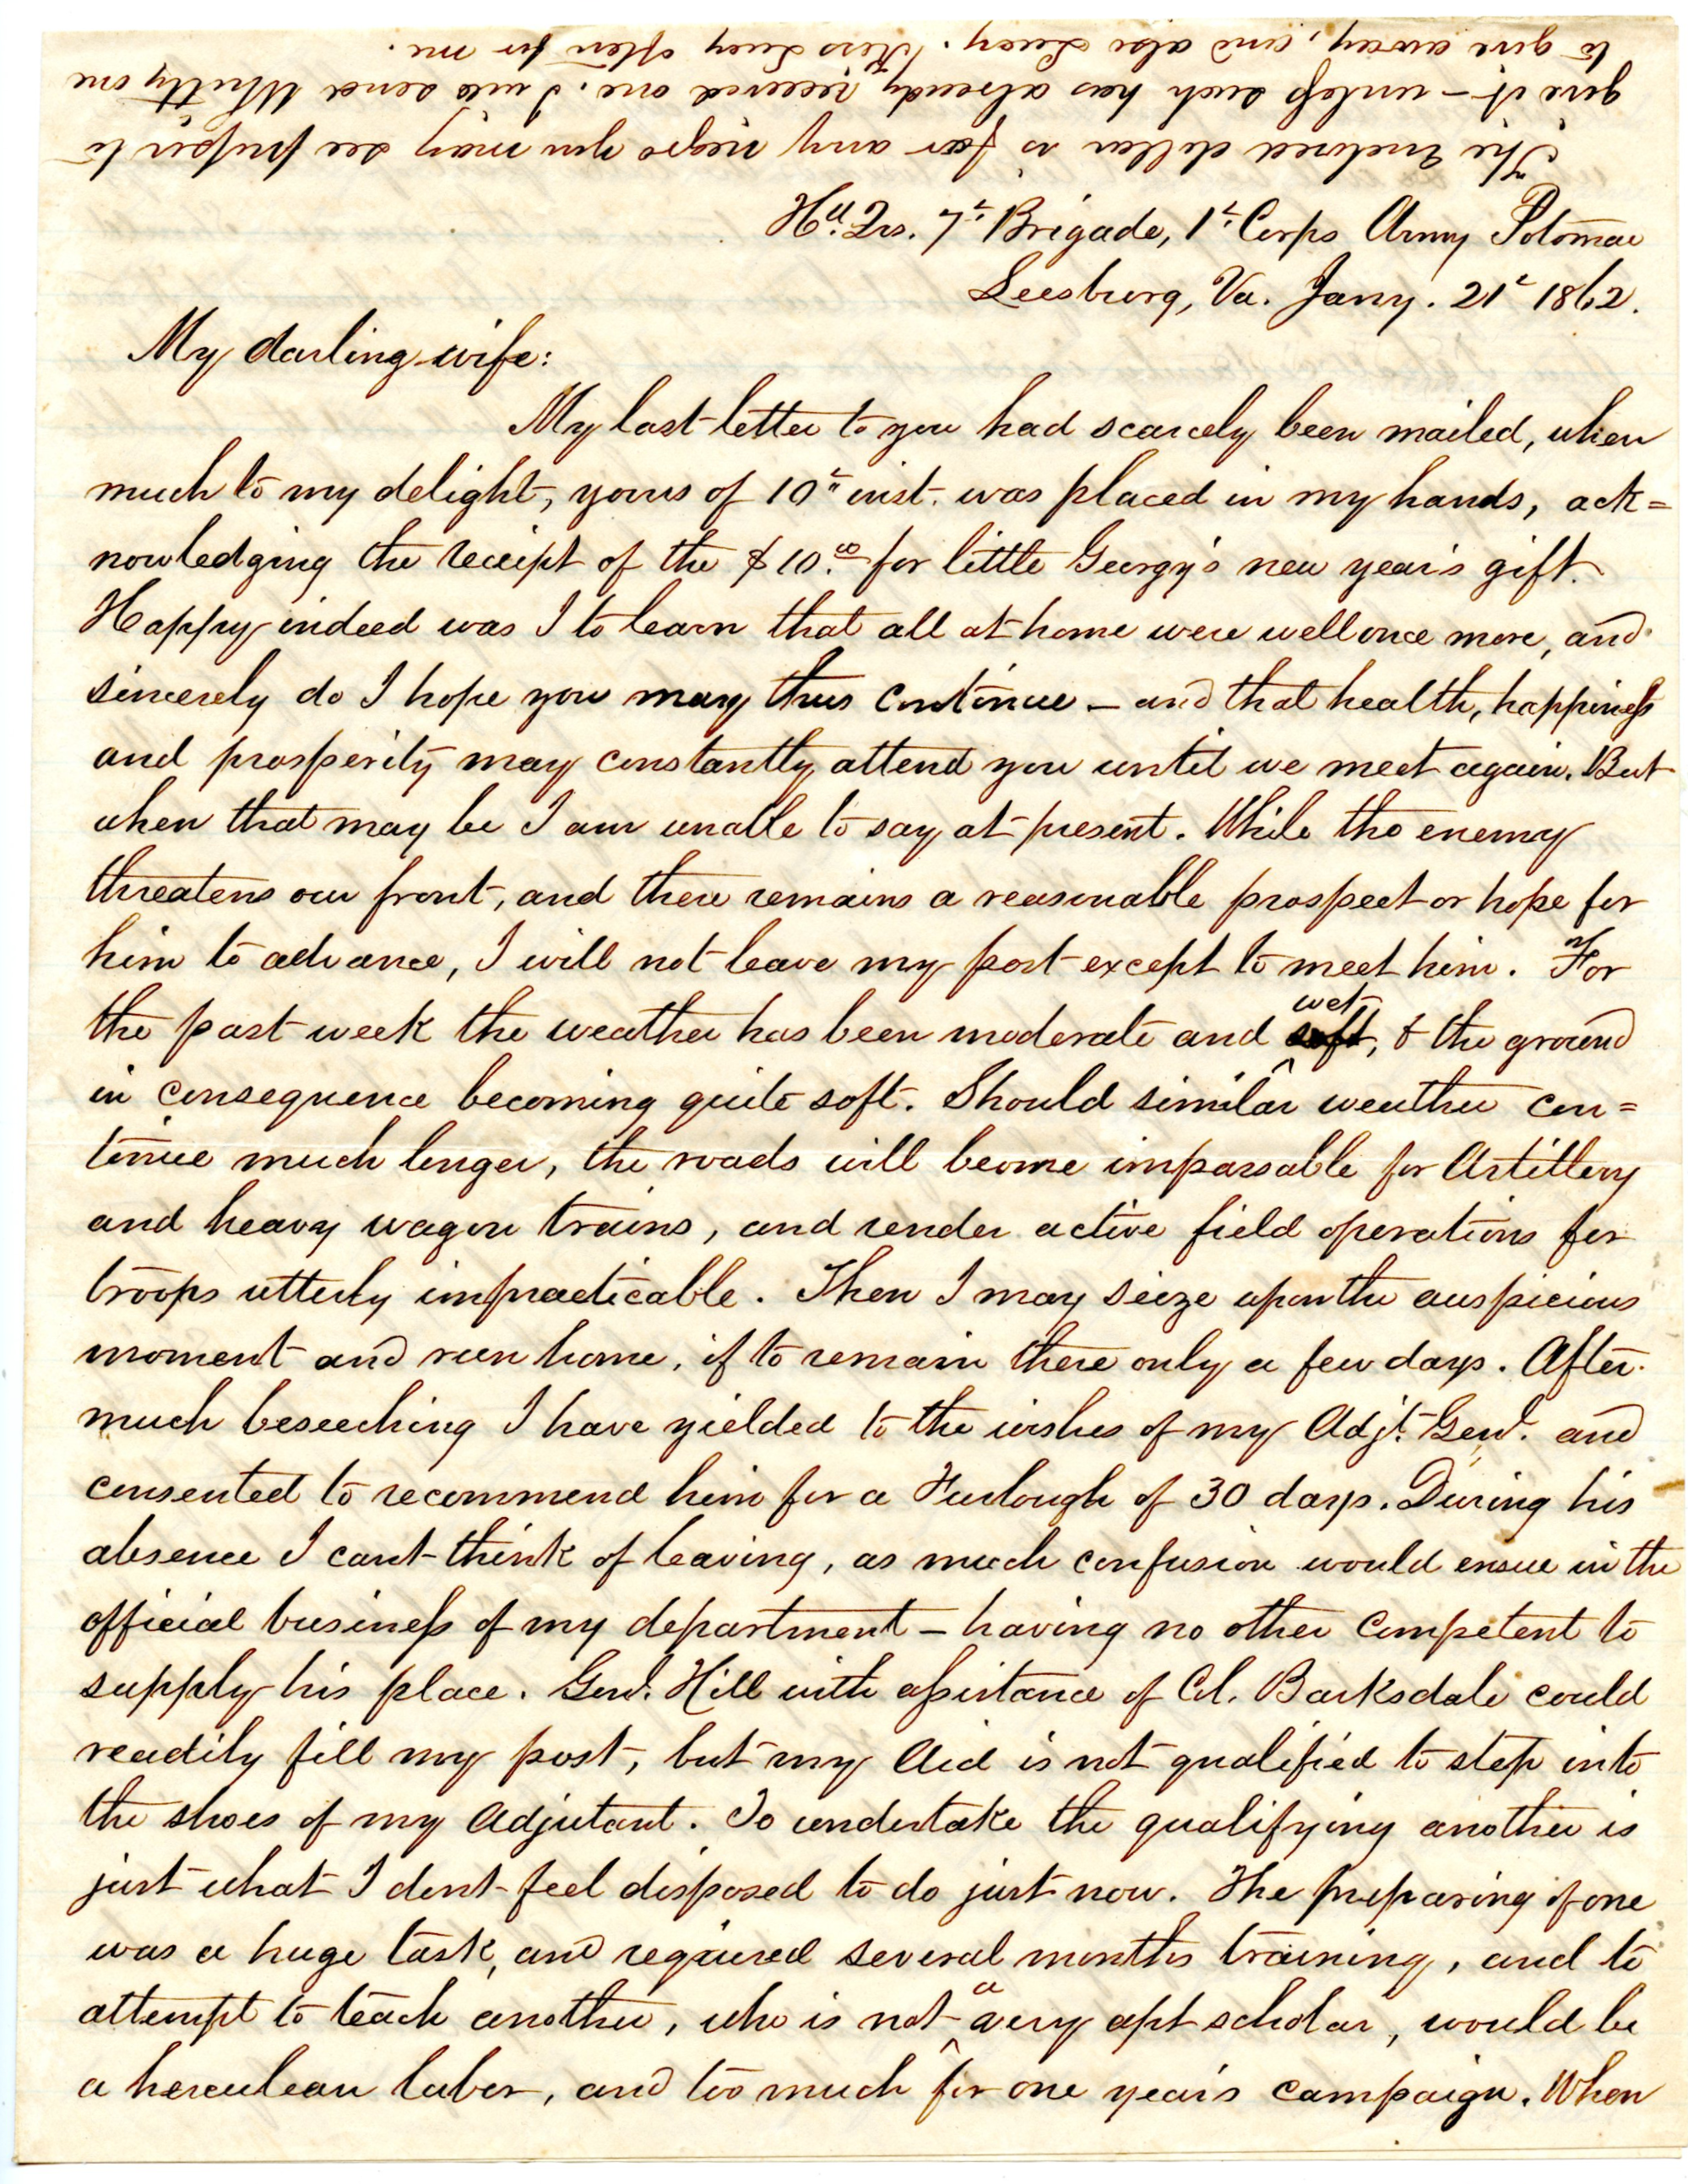 The enclosed dollar is for any negro you may see proper to
give it — unless such has already received one. I will send Whitty one
to give away, and also Lucy. Kiss Lucy often for me.
Hd. Qrs. 7th Brigade, 1st Corps Army Potomac
Leesburg, Va. Jany. 21st 1862.
My darling wife:
My last letter to you had scarcely been mailed, when
much to my delight, yours of 10th inst. was placed in my hands, ack=
nowledging the receipt of the $10.00 for little Georgy's new year's gift.
Happy indeed was I to learn that all at home were well once more, and
sincerely do I hope you may thus continue — and that health, happiness
and prosperity may constantly attend you until we meet again. But
when that may be I am unable to say at present. While the enemy
threatens our front, and there remains a reasonable prospect or hope for
him to advance, I will not leave my post except to meet him. For
the past week the weather has been moderate and soft wet, & the ground
in consequence becoming quite soft. Should similar weather con=
tinue much longer, the roads will become impassable for Artillery
and heavy wagon trains, and render active field operations for
troops utterly impracticable. Then I may seize upon the auspicious
moment and run home, if to remain there only a few days. After
much beseeching I have yielded to the wishes of my Adjt. Genl. and
consented to recommend him for a Furlough of 30 days. During his
absence I cant think of leaving, as much confusion would ensue in the
official business of my department — having no other competent to
supply his place. Genl. Hill with assistance of Col. Barksdale could
readily fill my post, but my Aid is not qualified to step into
the shoes of my Adjutant. To undertake the qualifying another is
just what I dont feel disposed to do just now. The preparing of one
was a huge task, and required several months training, and to
attempt to teach another, who is not a very apt scholar, would be
a herculean labor, and too much for one year's campaign. When